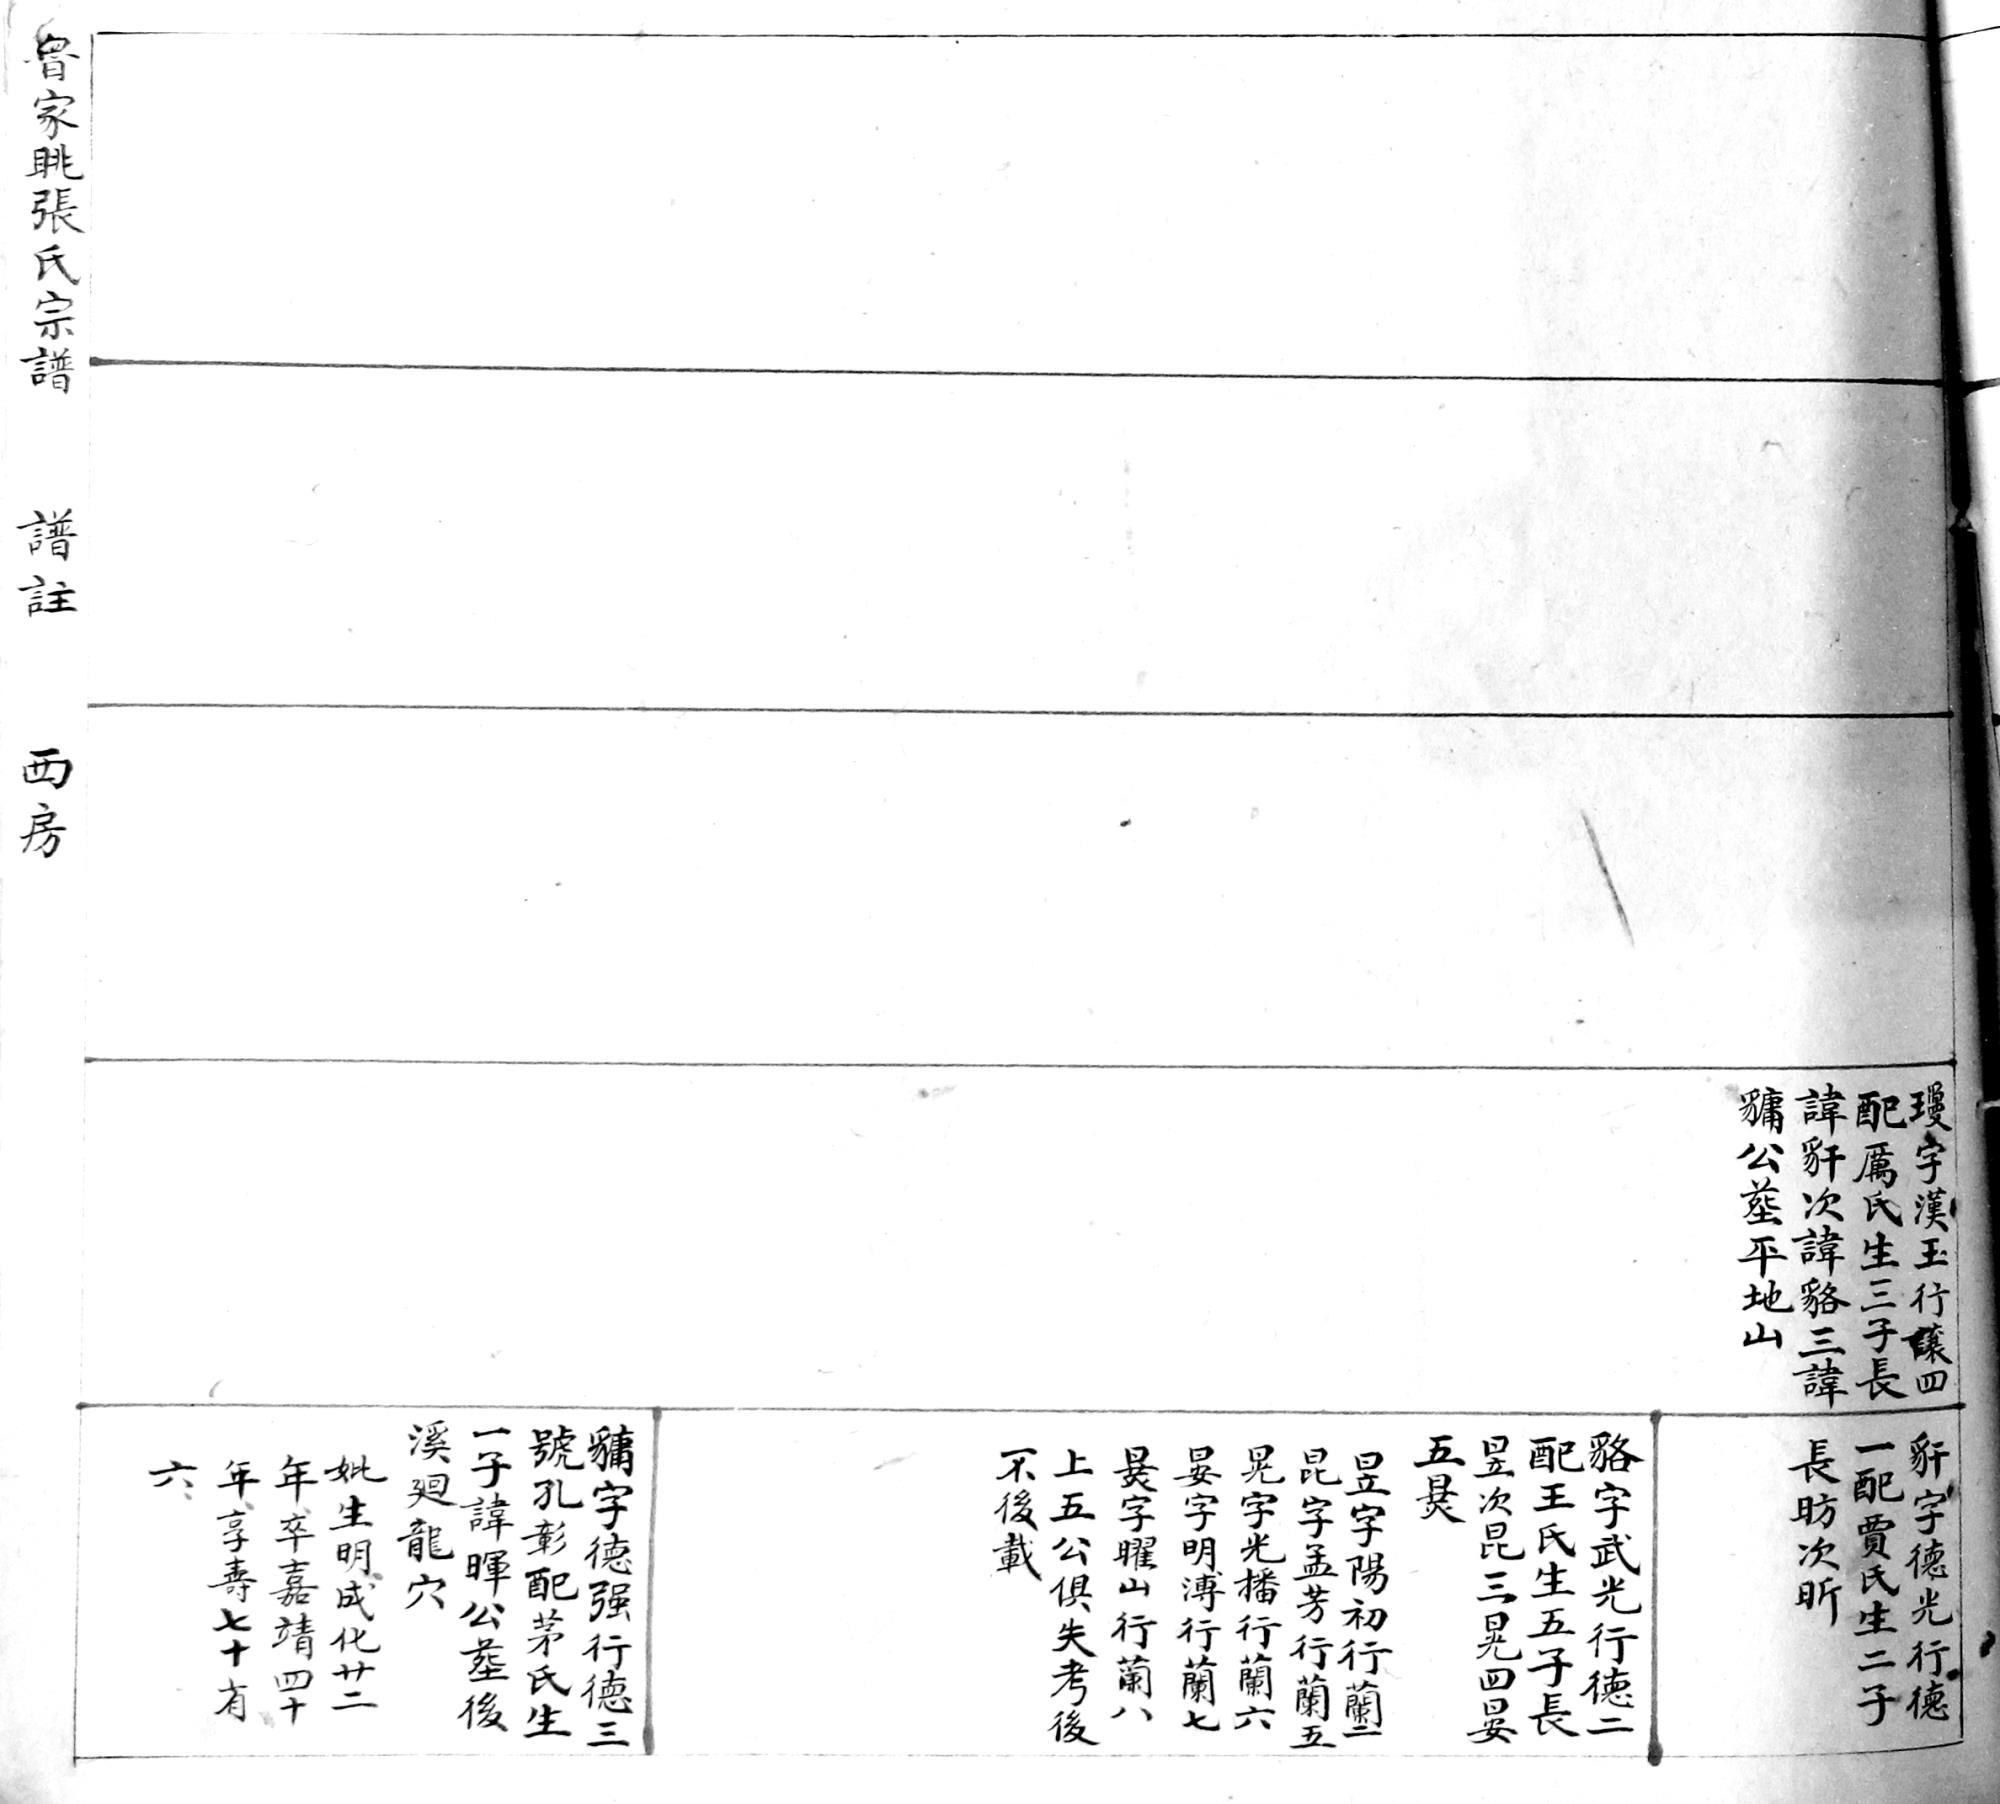 瓊字漢玉行讓四
配厲氏生三子長
諱豻次諱貉三諱
貓公塟平地山
豻字德光行德
一配賈氏生二子
長昉次昕
貉字武光行德二
配王氏生五子長
昱次昆三晃四晏
五炅
昱字陽初行蘭二
昆字孟芳行蘭五
晃字光播行蘭六
晏字明溥行蘭七
炅字曜山行蘭八
上五公俱失考後
不後載
字德强行德三
號孔彰配茅氏生
一子諱暉公塟後
溪廻龍穴
妣生明成化廿二
年卒嘉靖四十
年享壽七十有
六
家眺張氏宗譜
譜註
西房